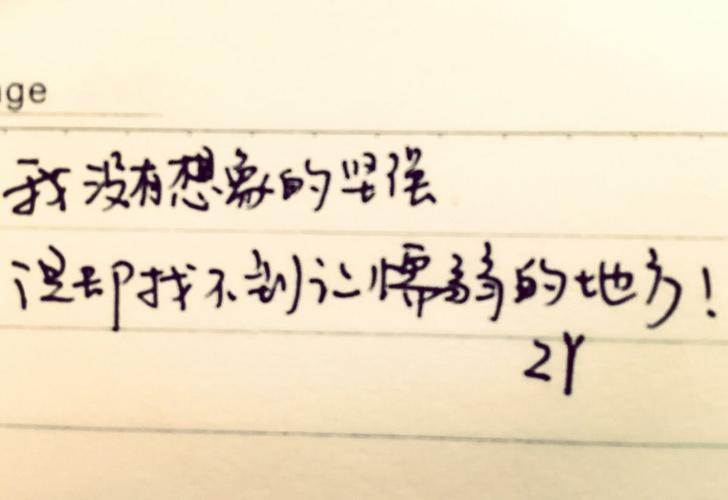 ge
我没有想象的坚强
但却找不到让懦弱的地方!
ZY